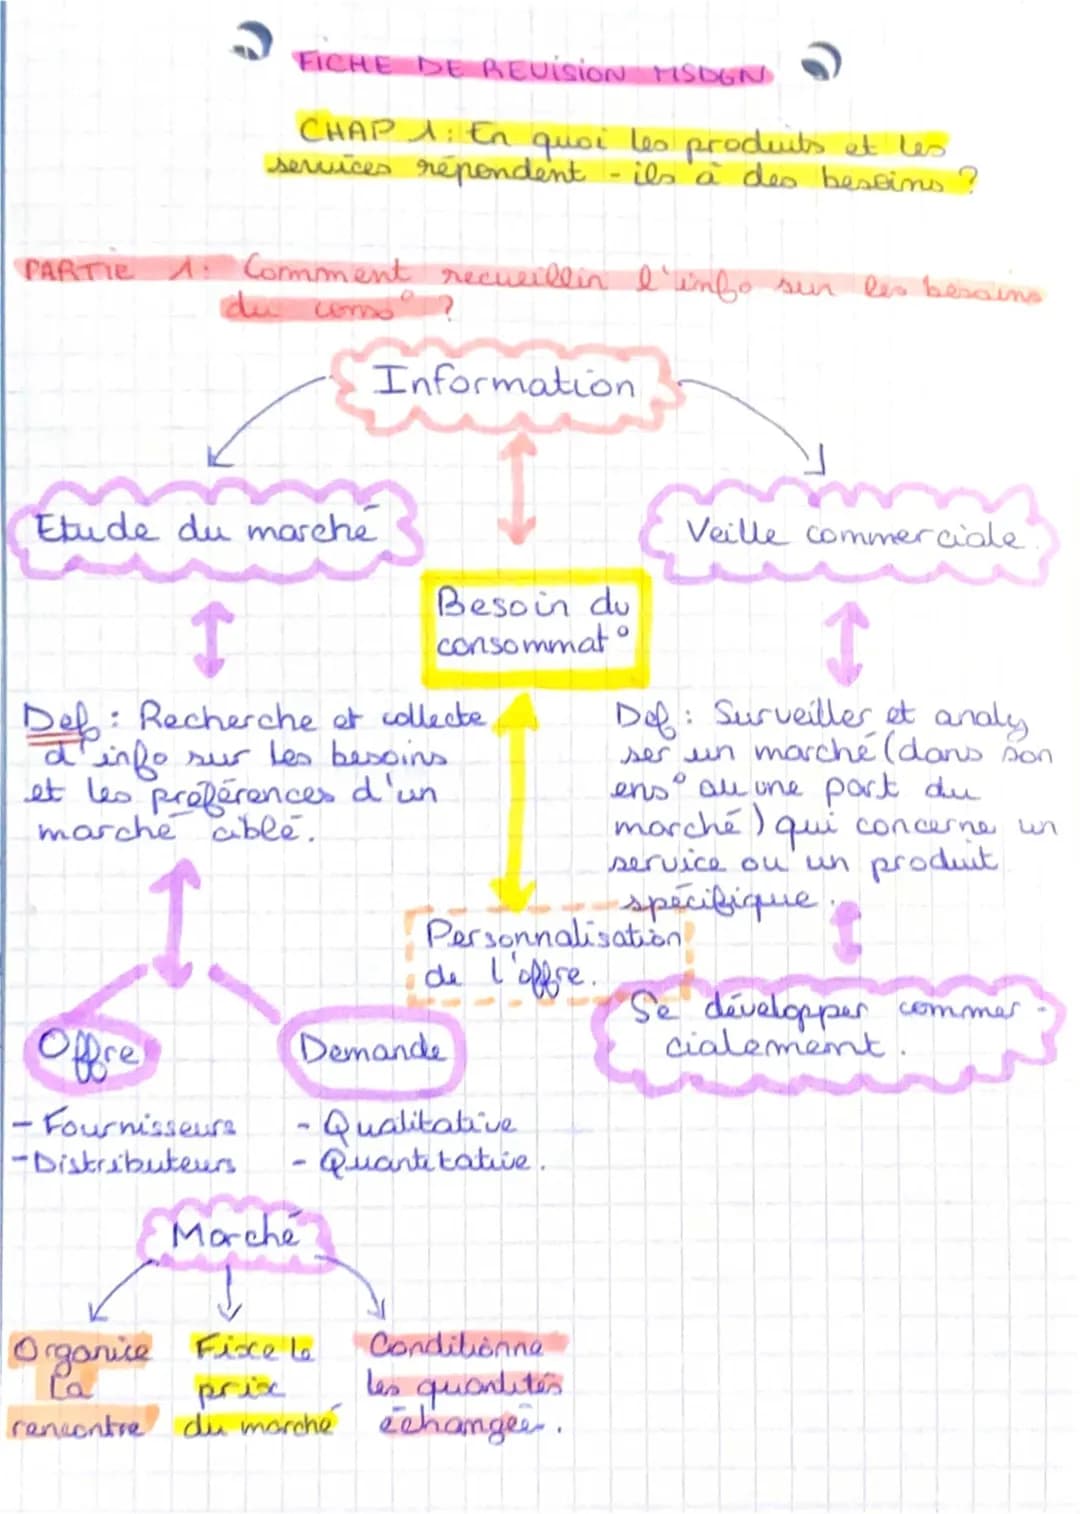 FICHE DE REVISION MSDGN
CHAP 1: En quoi les produits et les
services répondent-ils à des besoins ?
PARTIE 1: Comment recueillir l'info sur les besoins
du conso° ?
Information
Etude du marché
Veille commerciale.
Besoin du
consommat°
Def : Recherche et collecte
d'info sur les besoins
et les préférences d'un
marché ciblé.
Def : Surveiller et analy
ser un marché (dans son
ens° ou une part du
marché) qui concerne un
service ou un produit
spécifique.
Personnalisation
de l'offre.
Se développer commer-
cialement.
Offre
Demande
- Fournisseurs
- Distributeurs
- Qualitative
- Quantitative.
Marché
Organise
la
rencontre
Fixe le
prix
du marché
Conditionne
les quantités
échangées.